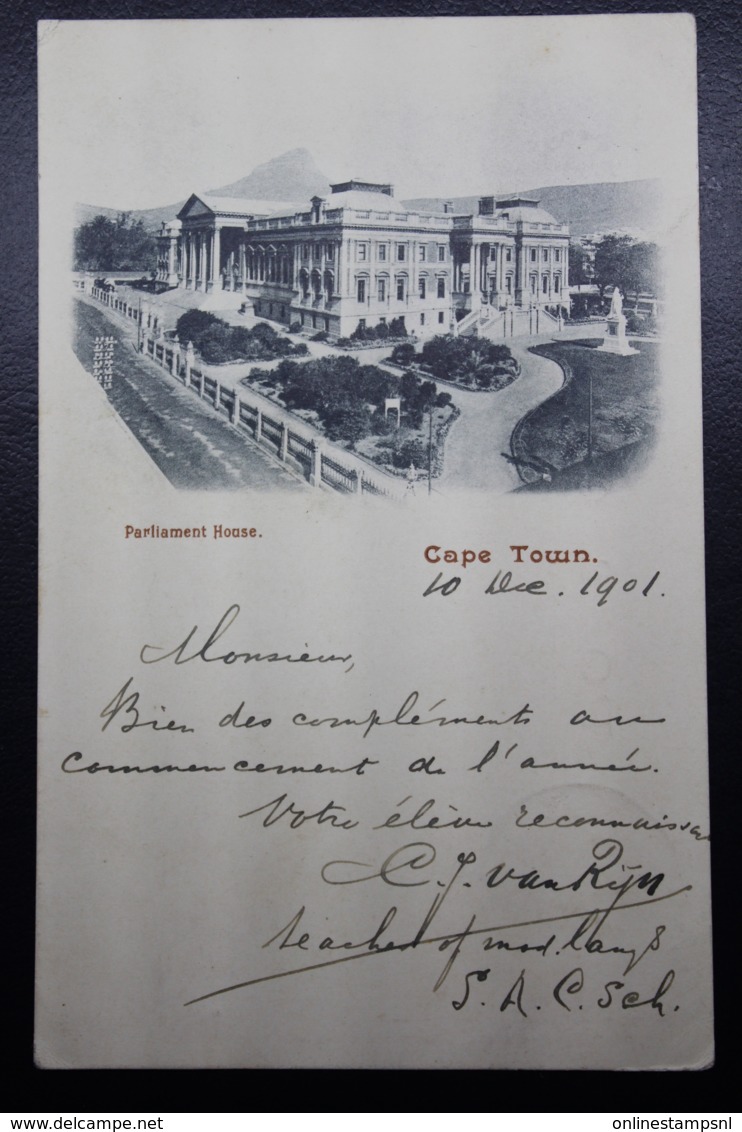 Parliament House.
Cape Town.
10 Dec. 1901.
Monsieur,
Bien des compléments au
commencement de l'année.
Votre élève reconnaissa
C. J. van Rijn
teacher of mod. langs
S. A. C. Sch.
https://www.delcampe.net
onlinestampsnl